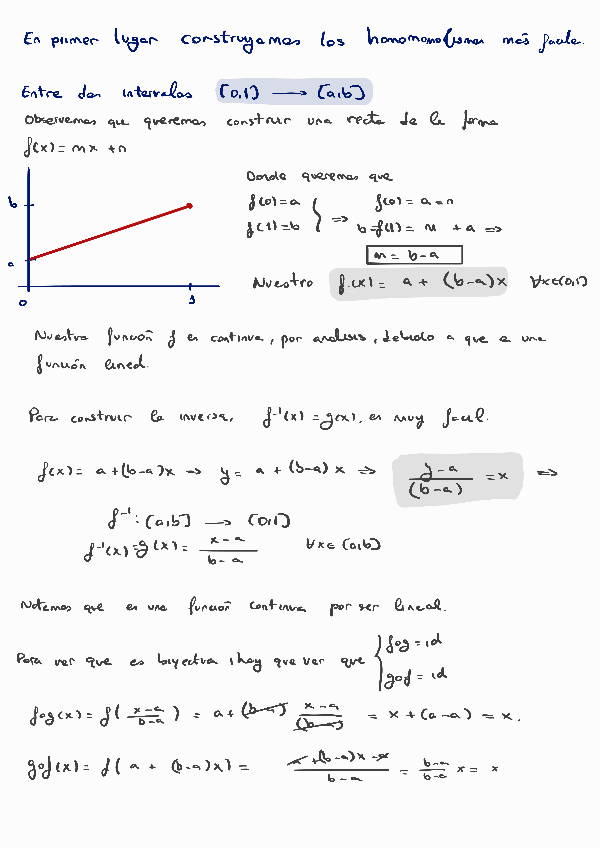 En primer lugar construyamos los homomorfismos más faciles.
Entre dos intervalos [0,1] ⟶ [a,b]
Observemos que queremos construir una recta de la forma
f(x) = mx + n
Donde queremos que
f(0) = a
f(1) = b } ⇒ f(0) = a = n
b = f(1) = m + a ⇒
m = b - a
b
a
0
1
Nuestro f(x) = a + (b-a)x ∀x∈[0,1]
Nuestra función f es continua, por analisis, debido a que e una
función lineal.
Para construir la inversa, f⁻¹(x) = g(x), es muy facil.
f(x) = a + (b-a)x ⇒ y = a + (b-a)x ⇒ (y-a)/(b-a) = x ⇒
f⁻¹: [a,b] ⟶ [0,1]
f⁻¹(x) = g(x) = (x-a)/(b-a) ∀x∈[a,b]
Notemos que es una función continua por ser lineal.
Para ver que es biyectiva, hay que ver que { fog = id
gof = id
fog(x) = f((x-a)/(b-a)) = a + (b-a) (x-a)/(b-a) = x + (a-a) = x.
gof(x) = f(a + (b-a)x) = (a+(b-a)x-a)/(b-a) = (b-a)/(b-a) x = x